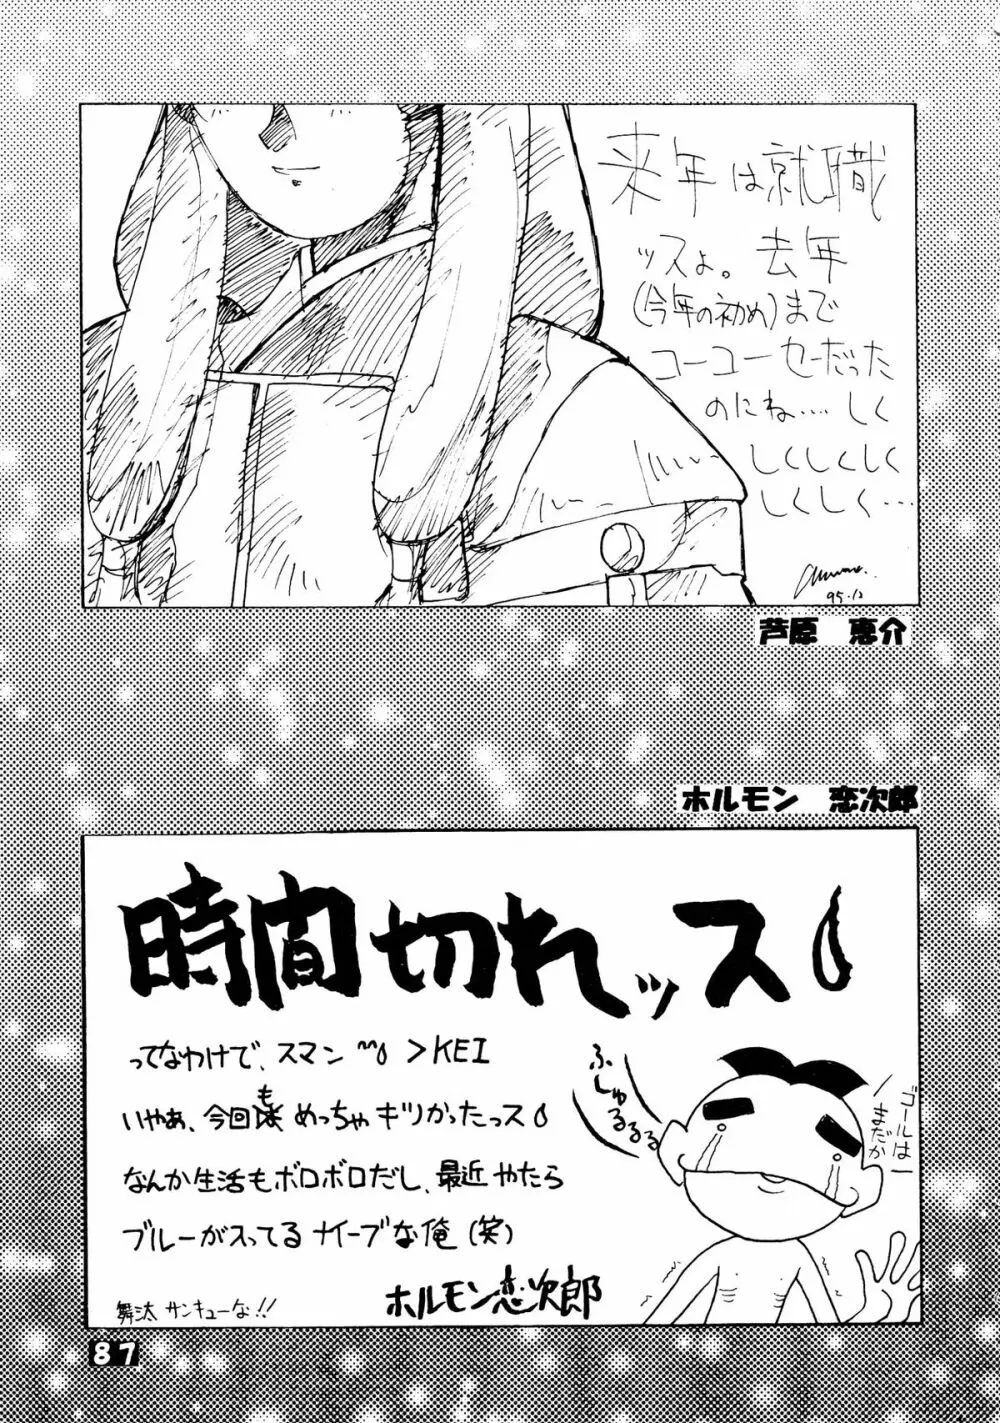 来年は就職
ッスよ。去年
(今年の初め)まで
コーユーセーだった
のにね‥‥しく
しくしくしく
しくしく‥
95.12
芦原 恵介
ホルモン 恋次郎
時間切れッス
ってなわけで、スマン >KEI
いやぁ、今回も めっちゃキツかったっス
なんか生活もボロボロだし、最近やたら
ブルーがスってるナイーブな俺(笑)
ホルモン恋次郎
舞汰 サンキューな!!
ふしゅるるる
ゴールは
まだかー
87